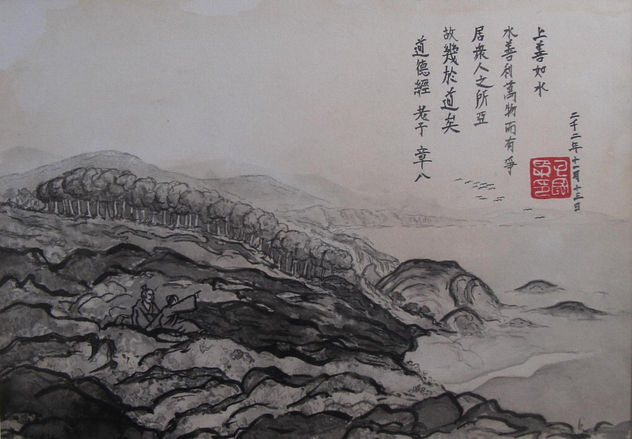 二千二年十一月十三日
上善如水
水善利萬物而有爭
居衆人之所亞
故幾於道矣
道德經 老子 章八